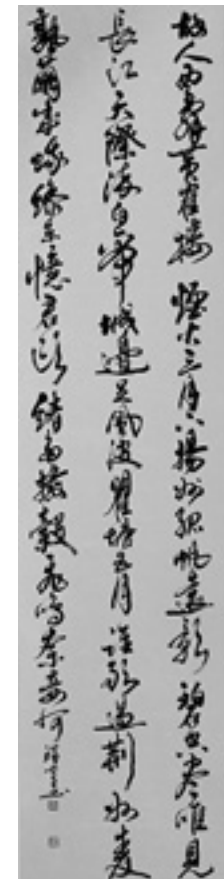 故人西辭黃鶴樓煙花三月下揚州孤帆遠影碧空盡唯見
長江天際流白帝城邊足風波瞿塘五月誰敢過荊州麥
熟繭成蛾繰絲憶君頭緒多撥穀飛鳴奈妾何